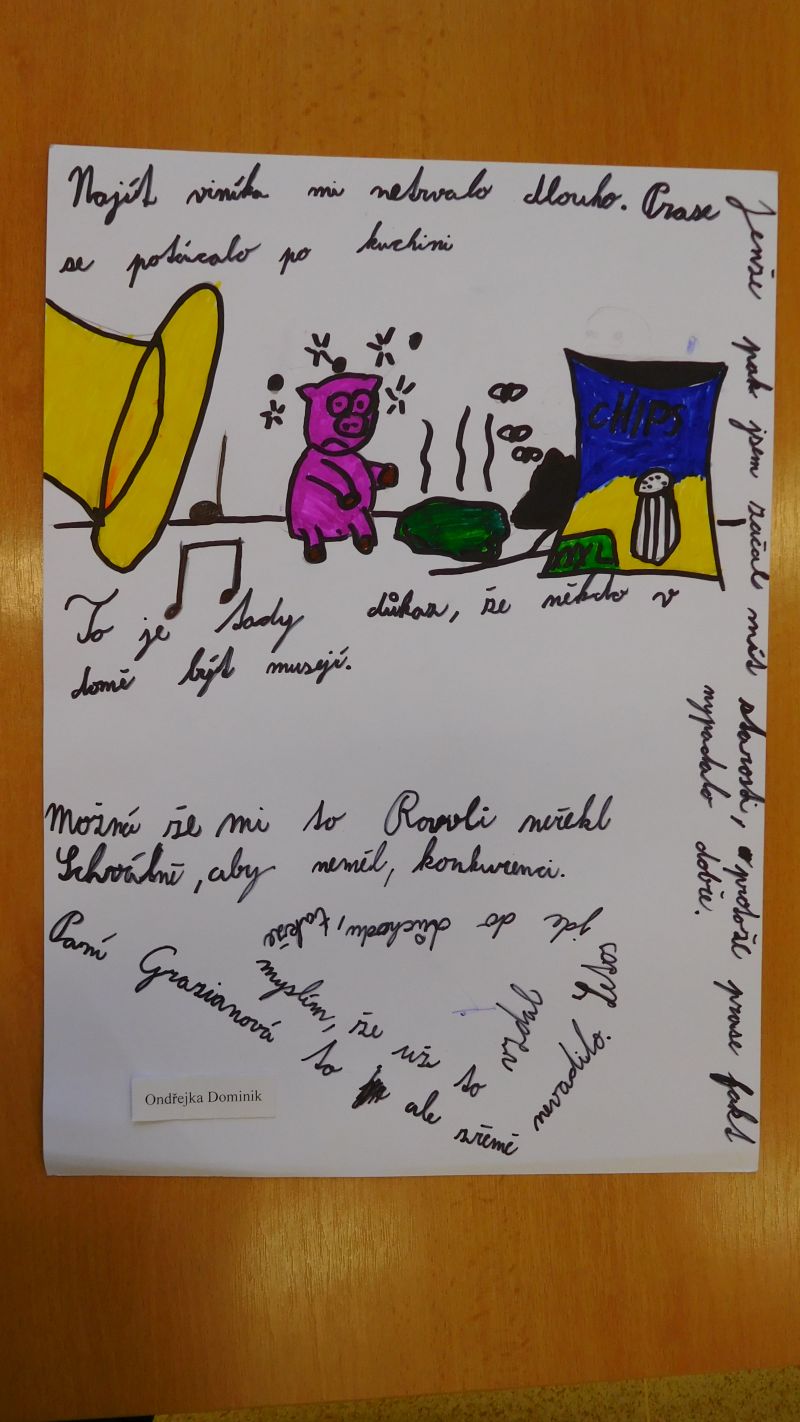 Najít viníka mi netrvalo dlouho. Prase
se potácalo po kuchini
CHIPS
To je tady důkaz, že někdo v
domě být musejí.
Možná že mi to Rowli neřekl
Schválně, aby neměl, konkurenci.
Paní Grazianová to ale zřémě
nevadilo. Letos
jde do důchodu, takže
myslím, že už to
vzdal
Jenže pak jsem začal mít starosti, protože prase fakt
nypadalo dobře.
Ondřejka Dominik